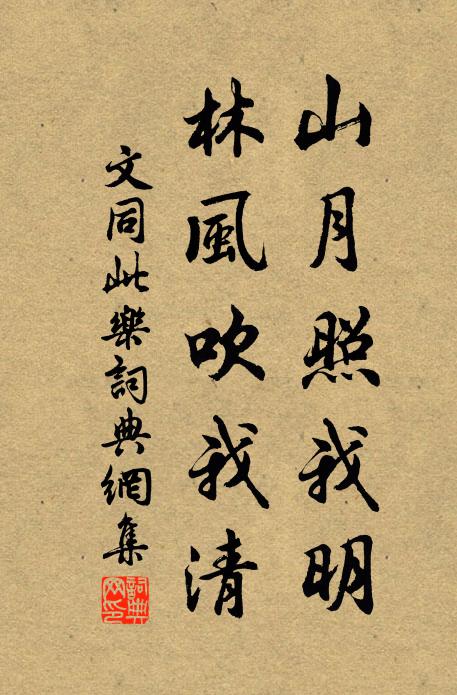 山月照我明
林風吹我清
文同此樂詞典網集
詞典網印